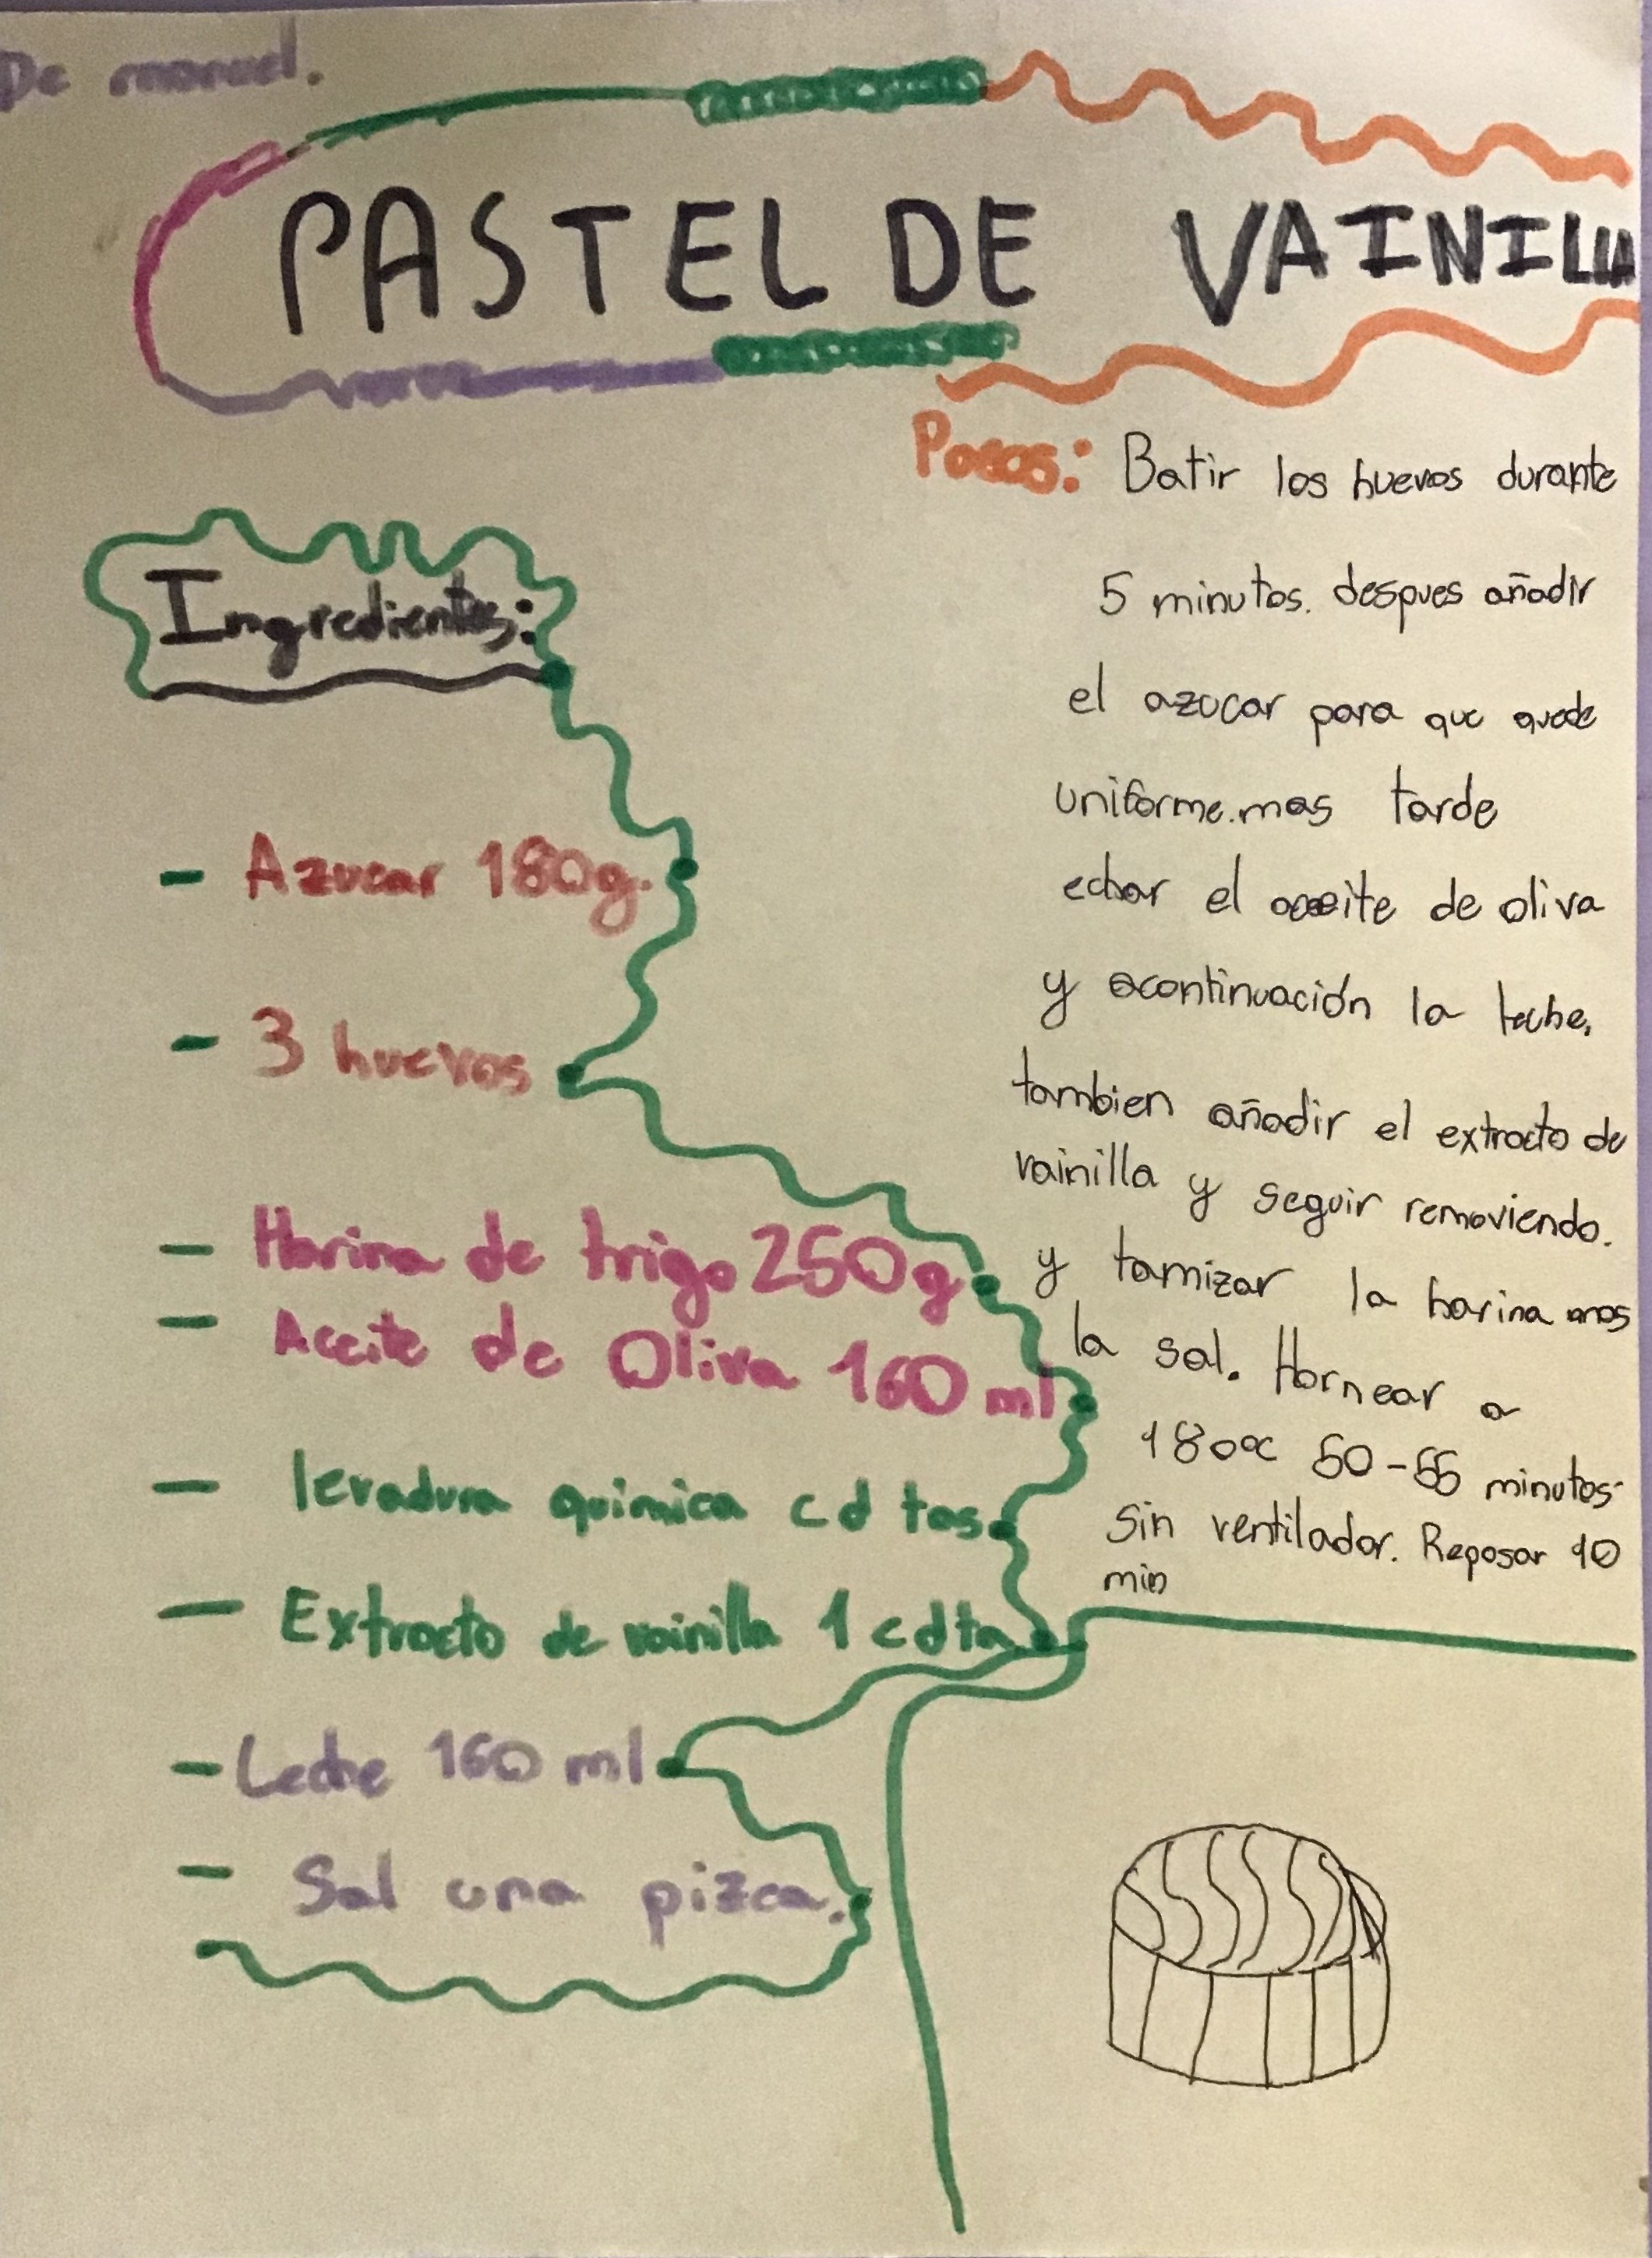 De manuel.
PASTEL DE VAINILLA
Ingredientes:
- Azucar 180g.
- 3 huevos
- Harina de trigo 250g
- Aceite de Oliva 160 ml
- levadura quimica cd tas
- Extracto de vainilla 1 cdta
- Leche 160 ml
- Sal una pizca.
Pasos: Batir los huevos durante
5 minutos. despues añadir
el azucar para que quede
uniforme. mas tarde
echar el aceite de oliva
y acontinuación la leche,
tambien añadir el extracto de
vainilla y seguir removiendo.
y tamizar la harina mas
la sal. Hornear a
180ºc 50-55 minutos
sin ventilador. Reposar 10
min